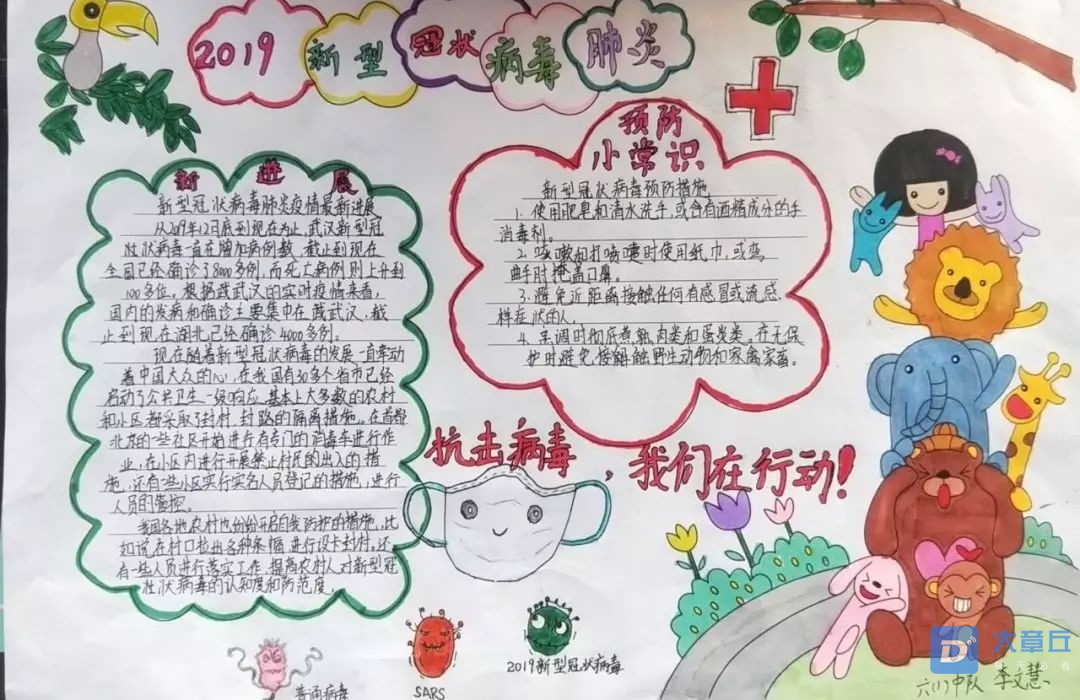 2019新型冠状病毒肺炎
新进展
新型冠状病毒肺炎疫情最新进展
从2019年12月底到现在为止,武汉新型冠
壮状病毒一直在增加病例数,截止到现在
全国已经确诊了8000多例,而死亡病例则上升到
100多位。根据武汉的实时疫情来看,
国内的发病和确诊主要集中在武汉,截
止到现在湖北已经确诊4000多例。
现在随着新型冠状病毒的发展一直牵动
着中国大众的心,在我国有30多个省市已经
启动了公共卫生一级响应,基本上大多数的农村
和小区都采取了封村,封路的隔离措施。在首都
北京的一些社区开始进行有专门的消毒车进行作
业,在小区内进行开展禁止村民的出入的措
施,还有一些小区实行实名人员登记的措施,进行
人员的管控。
我国各地农村也纷纷开启自我防护的措施,比
如说在村口拉出各种条幅,进行设卡封村。还
有一些人员进行落实工作,提高农村人对新型冠
壮状病毒的认知度和防范度。
预防
小常识
新型冠状病毒预防措施
1.使用肥皂和清水洗手,或含有酒精成分的手
消毒剂。
2.咳嗽和打喷嚏时使用纸巾,或弯
曲手肘掩盖口鼻。
3.避免近距离接触任何有感冒或流感
样症状的人。
4.烹调时彻底煮熟肉类和蛋类。在无保
护时避免接触野生动物和家禽家畜。
抗击病毒,我们在行动!
普通病毒
SARS
2019新型冠状病毒
大章丘
六(1)中队 李文慧